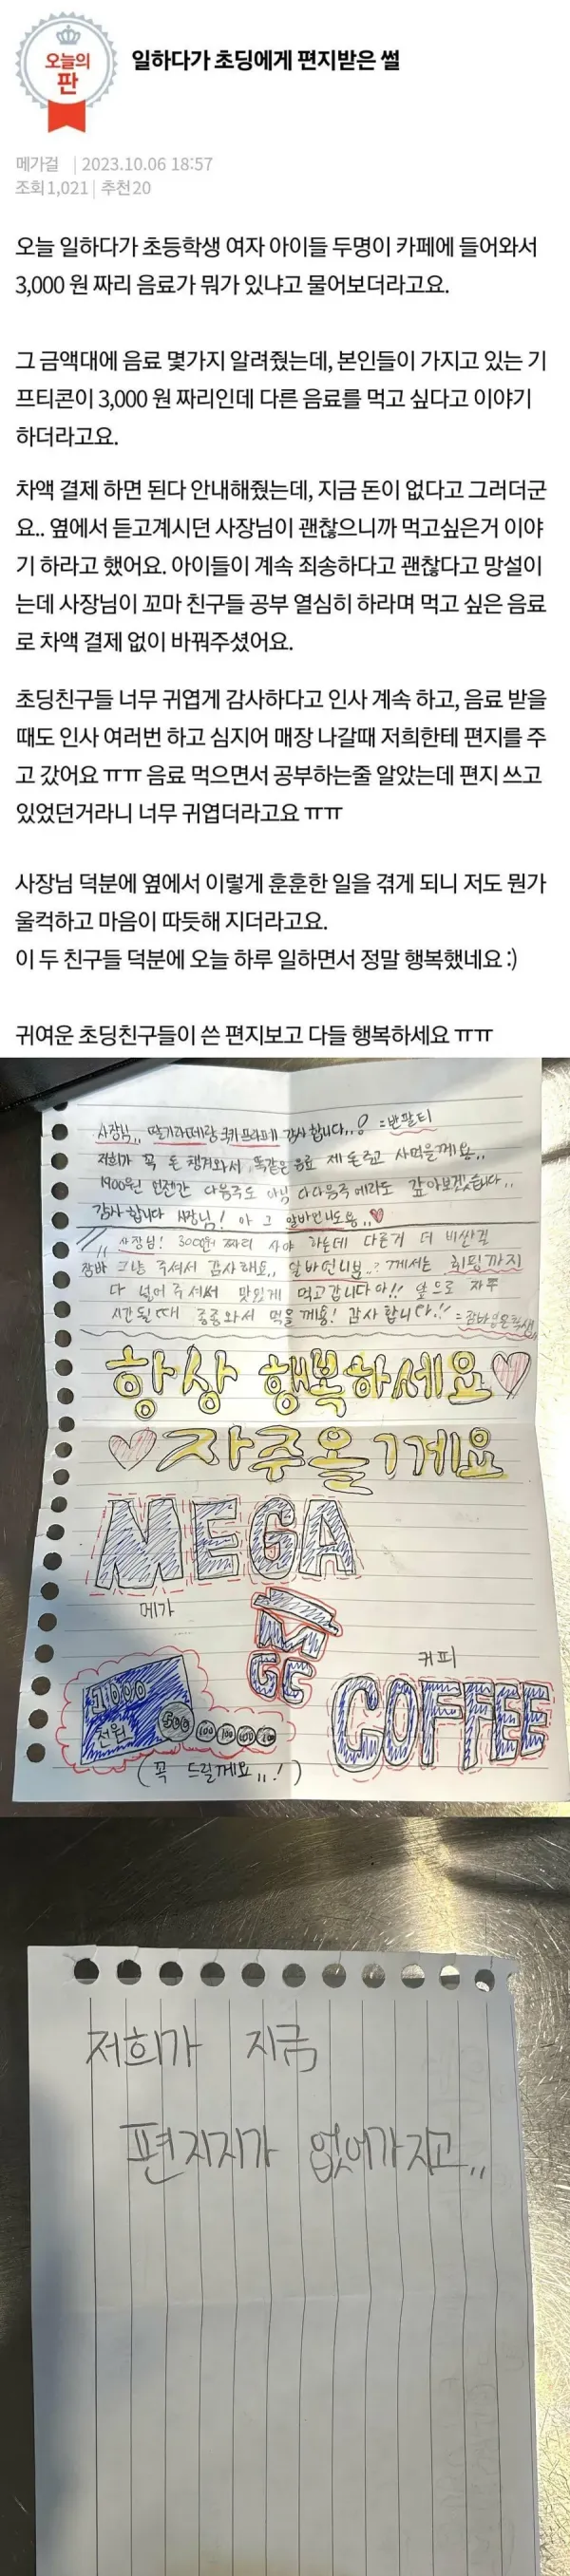 오늘의
판
일하다가 초딩에게 편지받은 썰
메가걸 | 2023.10.06 18:57
조회 1,021 | 추천 20
오늘 일하다가 초등학생 여자 아이들 두명이 카페에 들어와서
3,000 원 짜리 음료가 뭐가 있냐고 물어보더라고요.
그 금액대에 음료 몇가지 알려줬는데, 본인들이 가지고 있는 기
프티콘이 3,000 원 짜리인데 다른 음료를 먹고 싶다고 이야기
하더라고요.
차액 결제 하면 된다 안내해줬는데, 지금 돈이 없다고 그러더군
요.. 옆에서 듣고계시던 사장님이 괜찮으니까 먹고싶은거 이야
기 하라고 했어요. 아이들이 계속 죄송하다고 괜찮다고 망설이
는데 사장님이 꼬마 친구들 공부 열심히 하라며 먹고 싶은 음료
로 차액 결제 없이 바꿔주셨어요.
초딩친구들 너무 귀엽게 감사하다고 인사 계속 하고, 음료 받을
때도 인사 여러번 하고 심지어 매장 나갈때 저희한테 편지를 주
고 갔어요 ㅠㅠ 음료 먹으면서 공부하는줄 알았는데 편지 쓰고
있었던거라니 너무 귀엽더라고요 ㅠㅠ
사장님 덕분에 옆에서 이렇게 훈훈한 일을 겪게 되니 저도 뭔가
울컥하고 마음이 따듯해 지더라고요.
이 두 친구들 덕분에 오늘 하루 일하면서 정말 행복했네요 :)
귀여운 초딩친구들이 쓴 편지보고 다들 행복하세요 ㅠㅠ
사장님,, 딸기라떼랑 쿠키프라페 감사합니다,,! =반팔티
저희가 꼭 돈 챙겨와서 똑같은 음료 제 돈주고 사먹을께용,,
1900원 언젠간 다음주도 아님 다다음주 에라도 갚아보겠습니다,,
감사합니다 사장님! 아 그 알바언니도용,,♥
사장님! 3000원 짜리 사야 하는데 다른거 더 비싼걸
그냥 주셔서 감사해요,, 알바언니분..? 께서는 휘핑까지
다 넣어 주셔써 맛있게 먹고갑니다아!! 앞으로 자주
시간될때 종종와서 먹을께용! 감사합니다!!
항상 행복하세요♡
♡자주올게요
MEGA
메가
M
GC
커피
COFFEE
1000
천원
500 100 100 100 100
(꼭 드릴께요,,!)
저희가 지금
편지지가 없어가지고,,